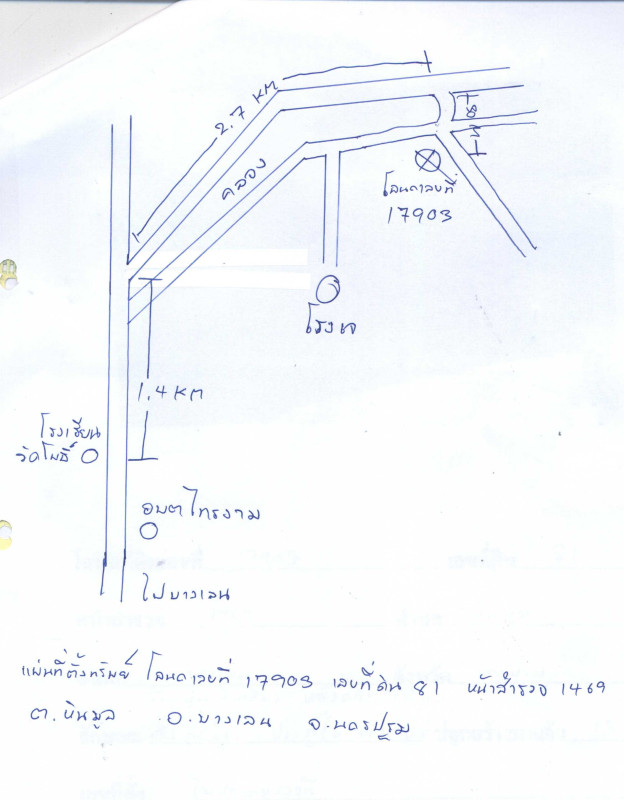 2.7 KM
คลอง
โฉนดเลขที่
17903
โรงเจ
1.4 KM
โรงเรียน
วัดโพธิ์
อบต ไทรงาม
ไปบางเลน
แผนที่ตั้งทรัพย์ โฉนดเลขที่ 17903 เลขที่ดิน 81 หน้าสำรวจ 1469
ต. หินมูล อ. บางเลน จ. นครปฐม